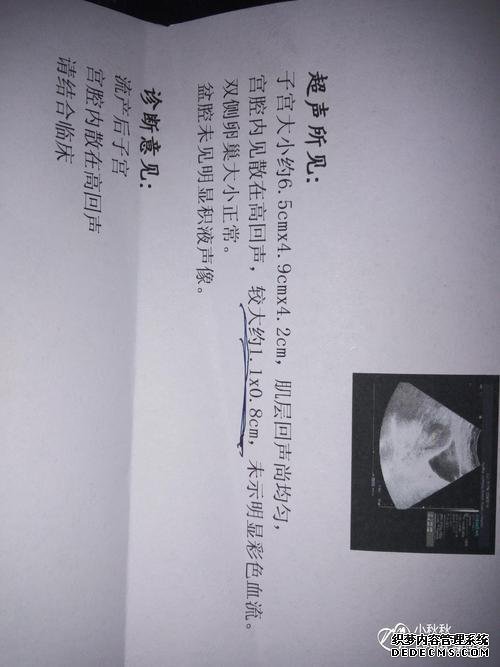 超声所见：
子宫大小约6.5cmx4.9cmx4.2cm，肌层回声尚均匀，
宫腔内见散在高回声，较大约1.1x0.8cm，未示明显彩色血流。
双侧卵巢大小正常。
盆腔未见明显积液声像。
诊断意见：
流产后子宫
宫腔内散在高回声
请结合临床
小秋秋
织梦内容管理系统
DEDECMS.COM